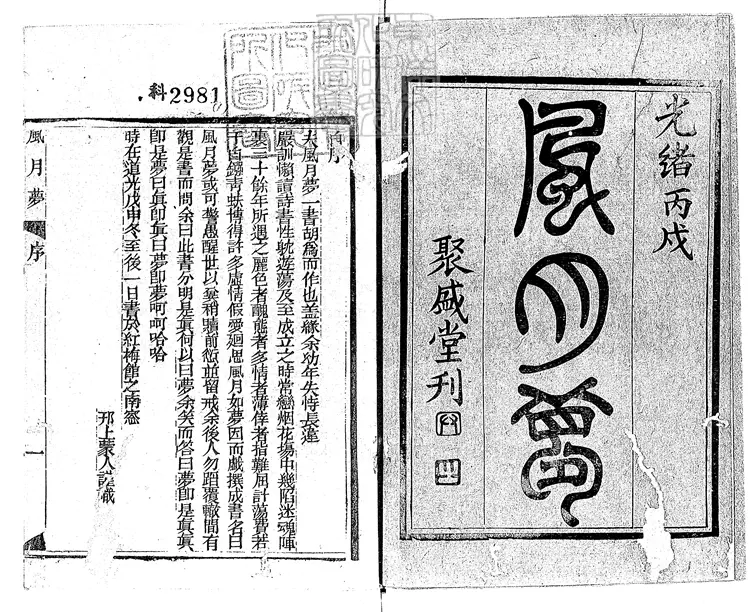 光緒丙戌
風月夢
聚盛堂刊
科2981
自序
夫風月夢一書胡爲而作也盖緣余幼年失恃長違
嚴訓懶讀詩書性躭遊蕩及至成立之時常戀烟花塲中幾陷迷魂陣
裏三十餘年所遇之麗色者醜態者多情者薄倖者指難屈計蕩費若
干白鏹青蚨博得許多虛情假愛廻思風月如夢因而戲撰成書名曰
風月夢或可警愚醒世以冀稍贖前愆並留戒余後人勿蹈覆轍間有
觀是書而問余曰此書分明是眞何以曰夢余笑而答曰夢卽是眞眞
卽是夢曰眞卽眞曰夢卽夢呵呵哈哈
時在道光戊申冬至後一日書於紅梅館之南窓
邗上蒙人謹識
風月夢 序 一